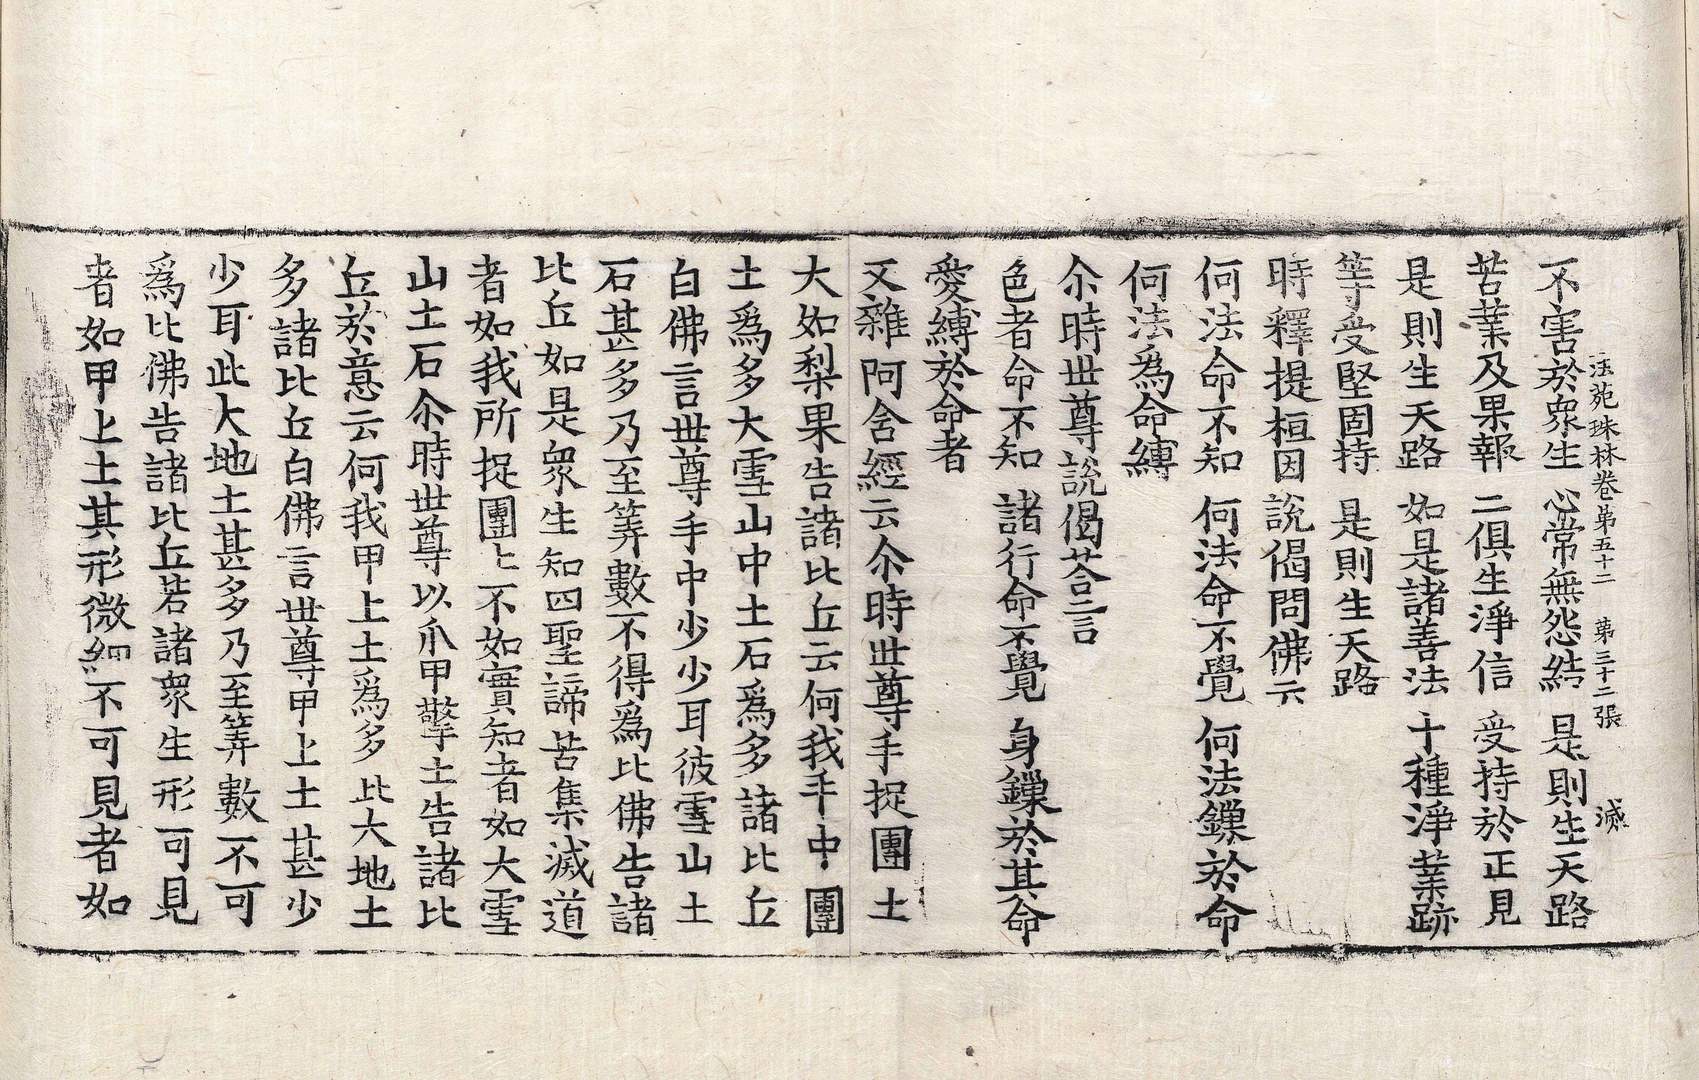 法苑珠林卷第五十二 第三十二張 滅
不害於衆生 心常無怨結 是則生天路
苦業及果報 二俱生淨信 受持於正見
是則生天路 如是諸善法 十種淨業跡
等受堅固持 是則生天路
時釋提桓因說偈問佛云
何法命不知 何法命不覺 何法鏁於命
何法爲命縛
尒時世尊說偈荅言
色者命不知 諸行命不覺 身鏁於其命
愛縛於命者
又雜阿含經云尒時世尊手捉團土
大如梨果告諸比丘云何我手中團
土爲多大雪山中土石爲多諸比丘
白佛言世尊手中少少耳彼雪山土
石甚多乃至筭數不得爲比佛告諸
比丘如是衆生知四聖諦苦集滅道
者如我所捉團上不如實知者如大雪
山土石尒時世尊以爪甲擎土告諸比
丘於意云何我甲上土爲多此大地土
多諸比丘白佛言世尊甲上土甚少
少耳此大地土甚多乃至筭數不可
爲比佛告諸比丘若諸衆生形可見
者如甲上土其形微細不可見者如